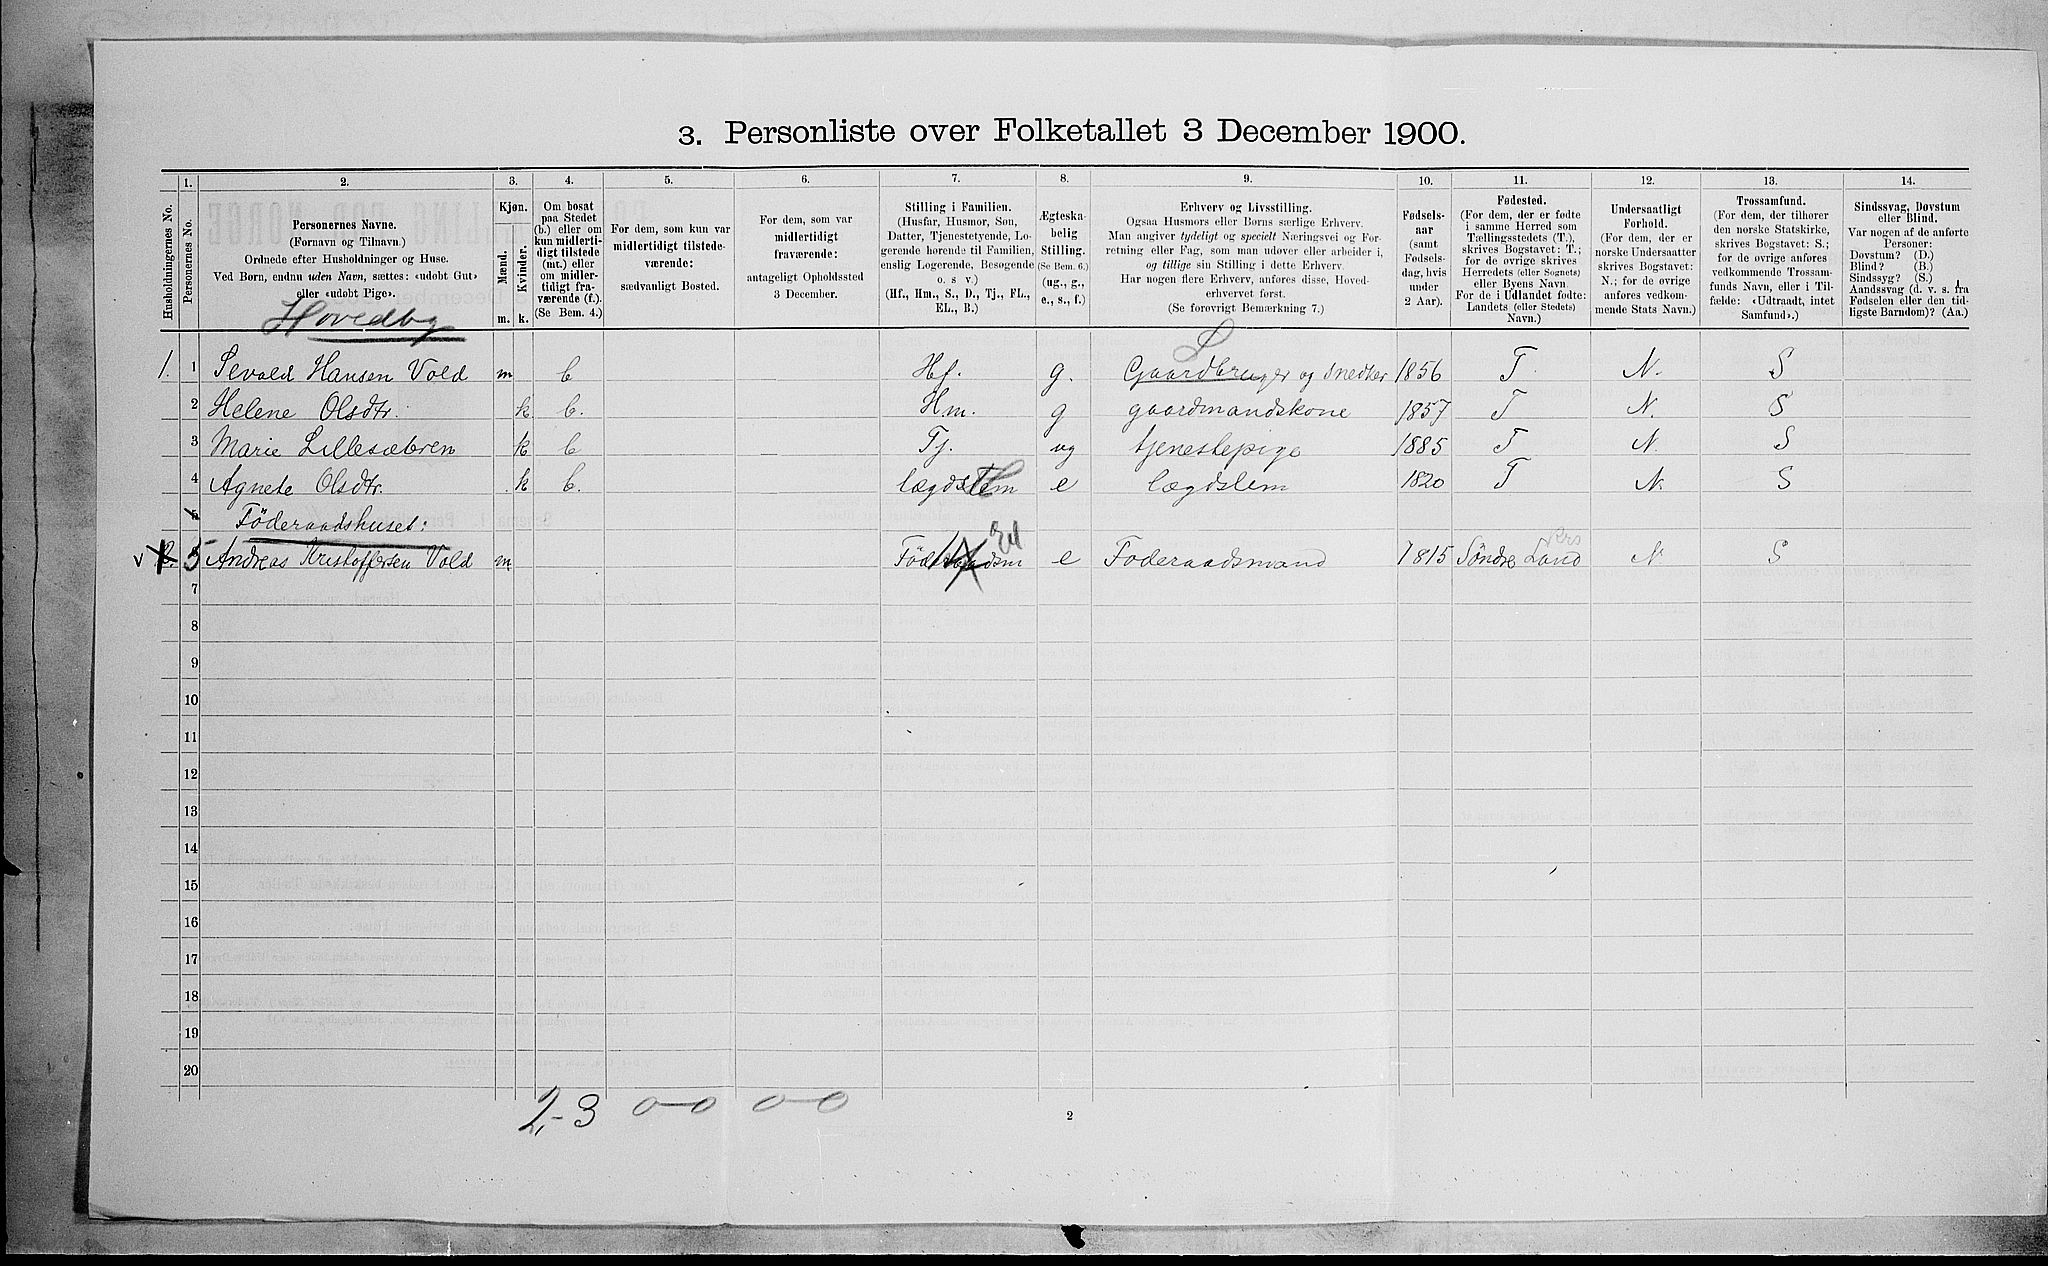 3. Personliste over Folketallet 3 December 1900.
1. 2. 3. 4. 5. 6. 7. 8. 9. 10. 11. 12. 13. 14.
Husholdningernes No.
Personernes No.
Personernes Navne.
(Fornavn og Tilnavn.)
Ordnede efter Husholdninger og Huse.
Ved Børn, endnu uden Navn, sættes: «udøbt Gut»
eller «udøbt Pige».
Kjøn.
Mænd.
Kvinder.
m. k.
Om bosat
paa Stedet
(b.) eller om
kun midlerti-
digt tilstede
(mt.) eller
om midler-
tidigt fra-
værende (f.).
(Se Bem. 4.)
For dem, som kun var
midlertidigt tilstede-
værende:
sædvanligt Bosted.
For dem, som var
midlertidigt
fraværende:
antageligt Opholdssted
3 December.
Stilling i Familien.
(Husfar, Husmor, Søn,
Datter, Tjenestetyende, Lo-
gerende hørende til Familien,
enslig Logerende, Besøgende
o. s v.)
(Hf., Hm., S., D., Tj., FL.,
EL., B.)
Ægteska-
belig
Stilling.
(Se Bem. 6.)
(ug., g.,
e., s., f.)
Erhverv og Livsstilling.
Ogsaa Husmors eller Børns særlige Erhverv.
Man angiver tydeligt og specielt Næringsvei og For-
retning eller Fag, som man udøver eller arbeider i,
og tillige sin Stilling i dette Erhverv.
Har nogen flere Erhverv, anføres disse, Hoved-
erhvervet først.
(Se forøvrigt Bemærkning 7.)
Fødsels-
aar
(samt
Fødsels-
dag, hvis
under
2 Aar).
Fødested.
(For dem, der er fødte
i samme Herred som
Tællingsstedets (T.),
skrives Bogstavet: T.;
for de øvrige skrives
Herredets (eller Sognets)
eller Byens Navn.
For de i Udlandet fødte:
Landets (eller Stedets)
Navn.)
Undersaatligt
Forhold.
(For dem, der er
norske Undersaatter
skrives Bogstavet:
N.; for de øvrige
anføres vedkom-
mende Stats Navn.)
Trossamfund.
(For dem, der tilhører
den norske Statskirke,
skrives Bogstavet: S.;
for de øvrige anføres
vedkommende Trossam-
funds Navn, eller i Til-
fælde: «Udtraadt, intet
Samfund».)
Sindssvag, Døvstum
eller Blind.
Var nogen af de anførte
Personer:
Døvstum? (D.)
Blind? (B.)
Sindssyg? (S.)
Aandssvag (d. v. s. fra
Fødselen eller den tid-
ligste Barndom)? (Aa.)
Hovedby
1. 1 Sevald Hansen Vold m b Hf. g. Gaardbruger og Snedker 1856 T N. S
2 Helene Olsdtr. k b. Hm. g gaardmandskone 1857 T N. S
3 Marie Lillesæbren k b Tj. ug tjenestepige 1885 T N. S
4 Agnete Olsdtr. k b. lægdslem e lægdslem 1820 T N. S
5 Föderaadshuset:
5 Andreas Kristoffersen Vold m el e Foderaadsmand 1815 Söndre Land N S
7
8
9
10
11
12
13
14
15
16
17
18
19
20
2-3 0-0 0-0
2